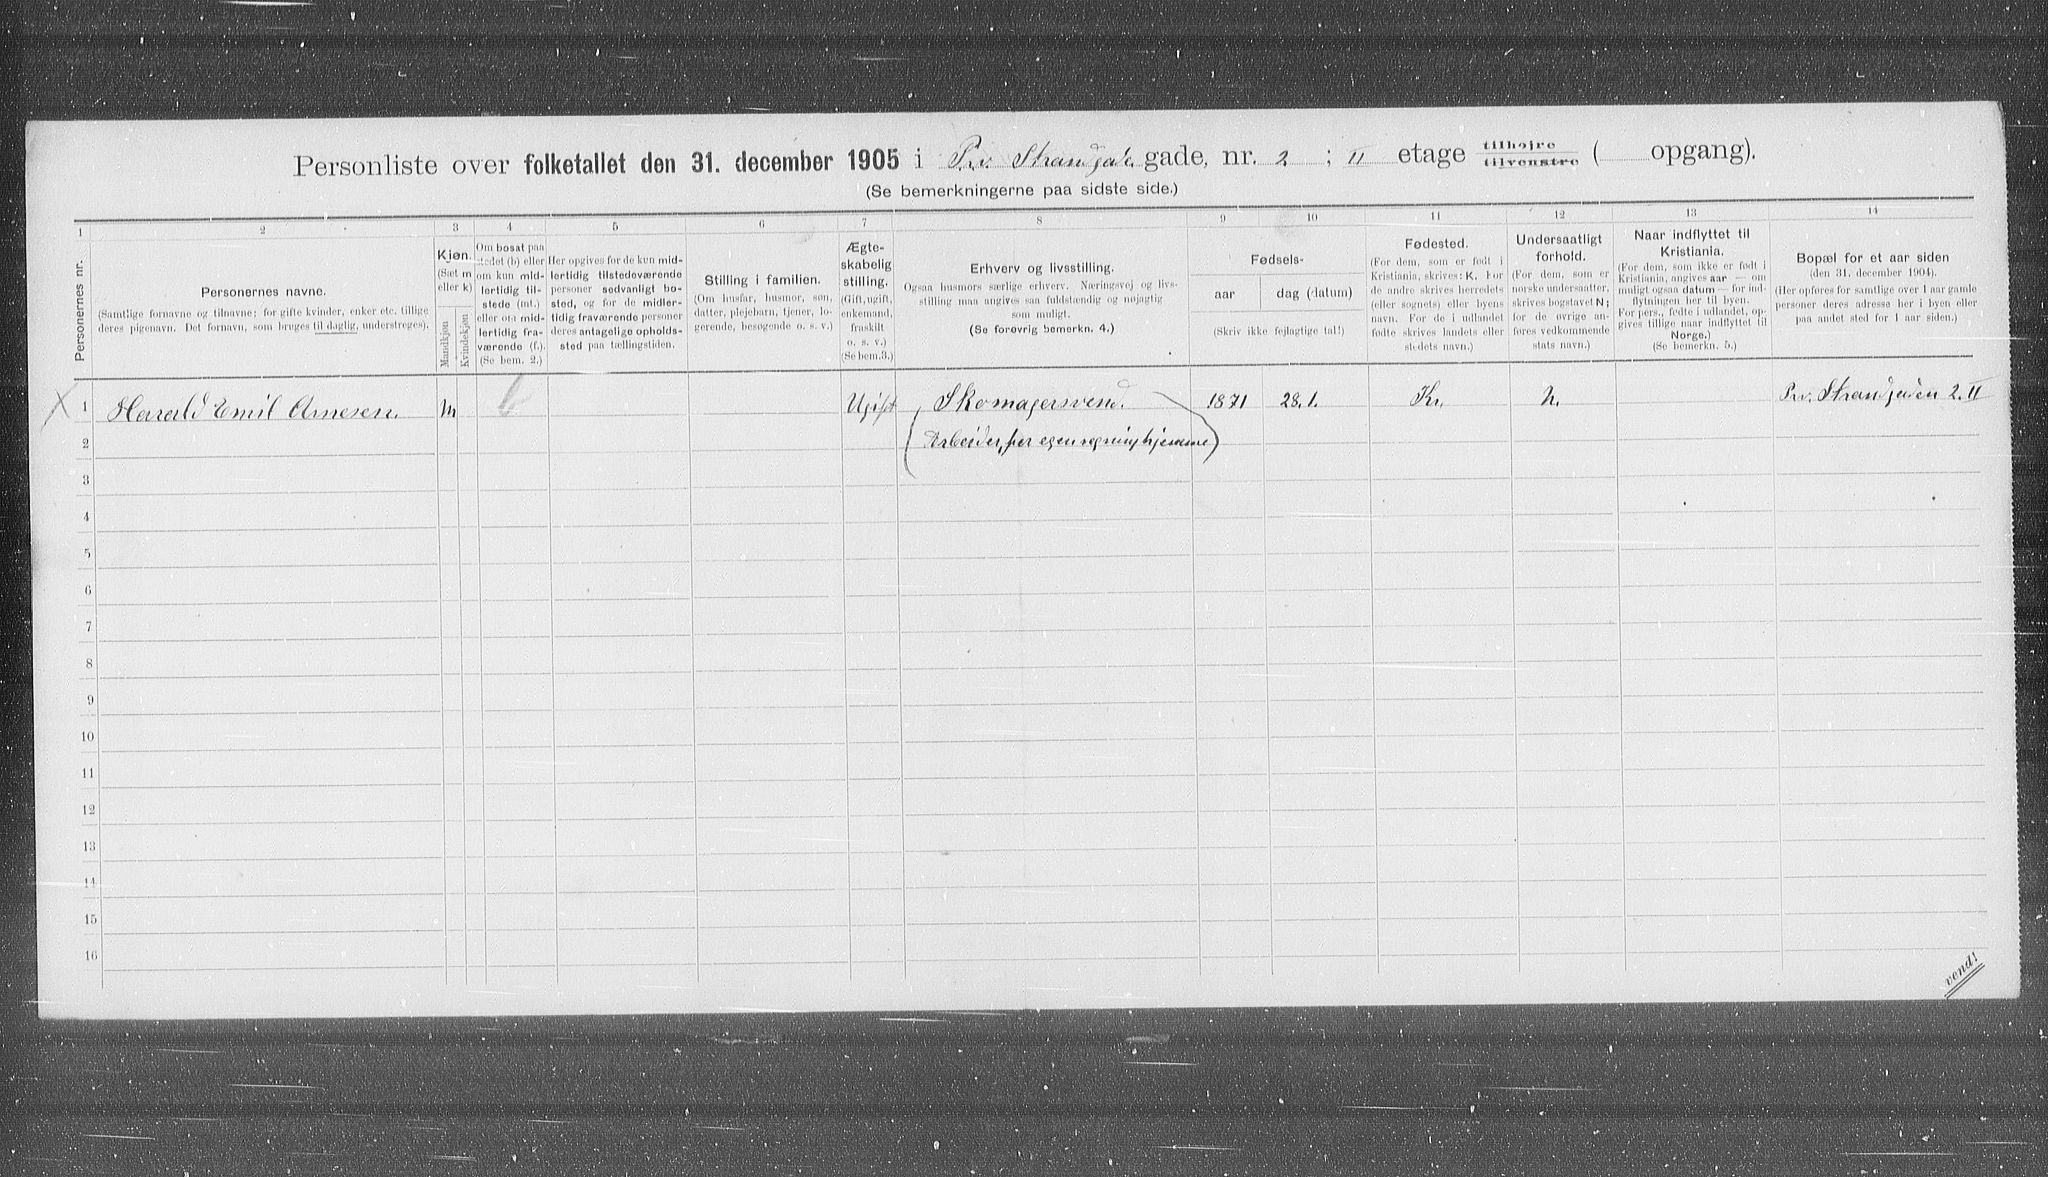 Personliste over folketallet den 31. december 1905 i Prv. Strandgade. gade, nr. 2 ; II etage tilhøjre / tilvenstre ( opgang).
(Se bemerkningerne paa sidste side.)
1 2 3 4 5 6 7 8 9 10 11 12 13 14
Personernes nr.
Personernes navne.
(Samtlige fornavne og tilnavne; for gifte kvinder, enker etc. tillige
deres pigenavn. Det fornavn, som bruges til daglig, understreges).
Kjøn.
(Sæt m
eller k)
Mandkjøn
Kvindekjøn
Om bosat paa
stedet (b) eller
om kun mid-
lertidig til-
stede (mt.)
eller om mid-
lertidig fra-
værende (f.).
(Se bem. 2.)
Her opgives for de kun mid-
lertidig tilstedeværende
personer sedvanligt bo-
sted, og for de midler-
tidig fraværende personer
deres antagelige opholds-
sted paa tællingstiden.
Stilling i familien.
(Om husfar, husmor, søn,
datter, plejebarn, tjener, lo-
gerende, besøgende o. s. v.)
Ægte-
skabelig
stilling.
(Gift, ugift,
enkemand,
fraskilt
o. s. v.)
(Se bem. 3.)
Erhverv og livsstilling.
Ogsaa husmors særlige erhverv. Næringsvej og livs-
stilling maa angives saa fuldstændig og nøjagtig
som muligt.
(Se forøvrig bemerkn. 4.)
Fødsels-
aar
dag (datum)
(Skriv ikke fejlagtige tal!)
Fødested.
(For dem, som er født i
Kristiania, skrives: K. For
de andre skrives herredets
(eller sognets) eller byens
navn. For de i udlandet
fødte skrives landets eller
stedets navn.)
Undersaatligt
forhold.
(For dem, som er
norske undersaatter,
skrives bogstavet N;
for de øvrige an-
føres vedkommende
stats navn.)
Naar indflyttet til
Kristiania.
(For dem, som ikke er født i
Kristiania, angives aar — om
muligt ogsaa datum — for ind-
flytningen her til byen.
For pers., fødte i udlandet, op-
gives tillige naar indflyttet til
Norge.)
(Se bemerkn. 5.)
Bopæl for et aar siden
(den 31. december 1904).
(Her opføres for samtlige over 1 aar gamle
personer deres adresse her i byen eller
paa andet sted for 1 aar siden.)
X 1 Harald Emil Arnesen. m b Ugift Skomagersvend. 1871 28.1. Kr. N. Prv. Strandgaden 2. II
2 (Arbeider for egen regning hjemme)
3
4
5
6
7
8
9
10
11
12
13
14
15
16
vend!